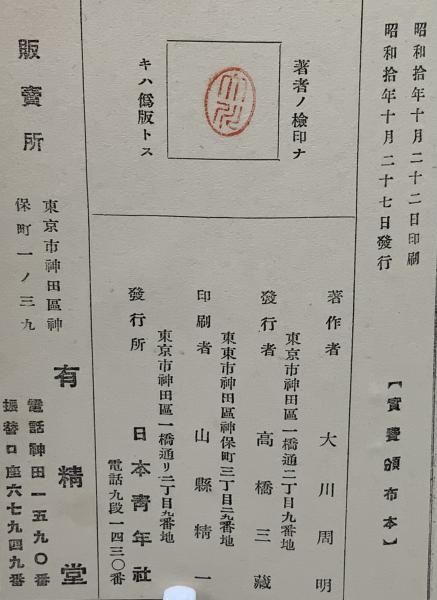 昭和拾年十月二十二日印刷
昭和拾年十月二十七日發行
【實費頒布本】
著者ノ檢印ナ
キハ僞版トス
著作者 大川周明
東京市神田區一橋通二丁目九番地
發行者 高橋三藏
東東市神田區神保町三丁目二九番地
印刷者 山縣精一
東京市神田區一橋通リ二丁目九番地
發行所 日本靑年社
電話九段一四三〇番
販賣所
東京市神田區神
保町一ノ三九
有精堂
電話神田一五九〇番
振替口座六七九四九番